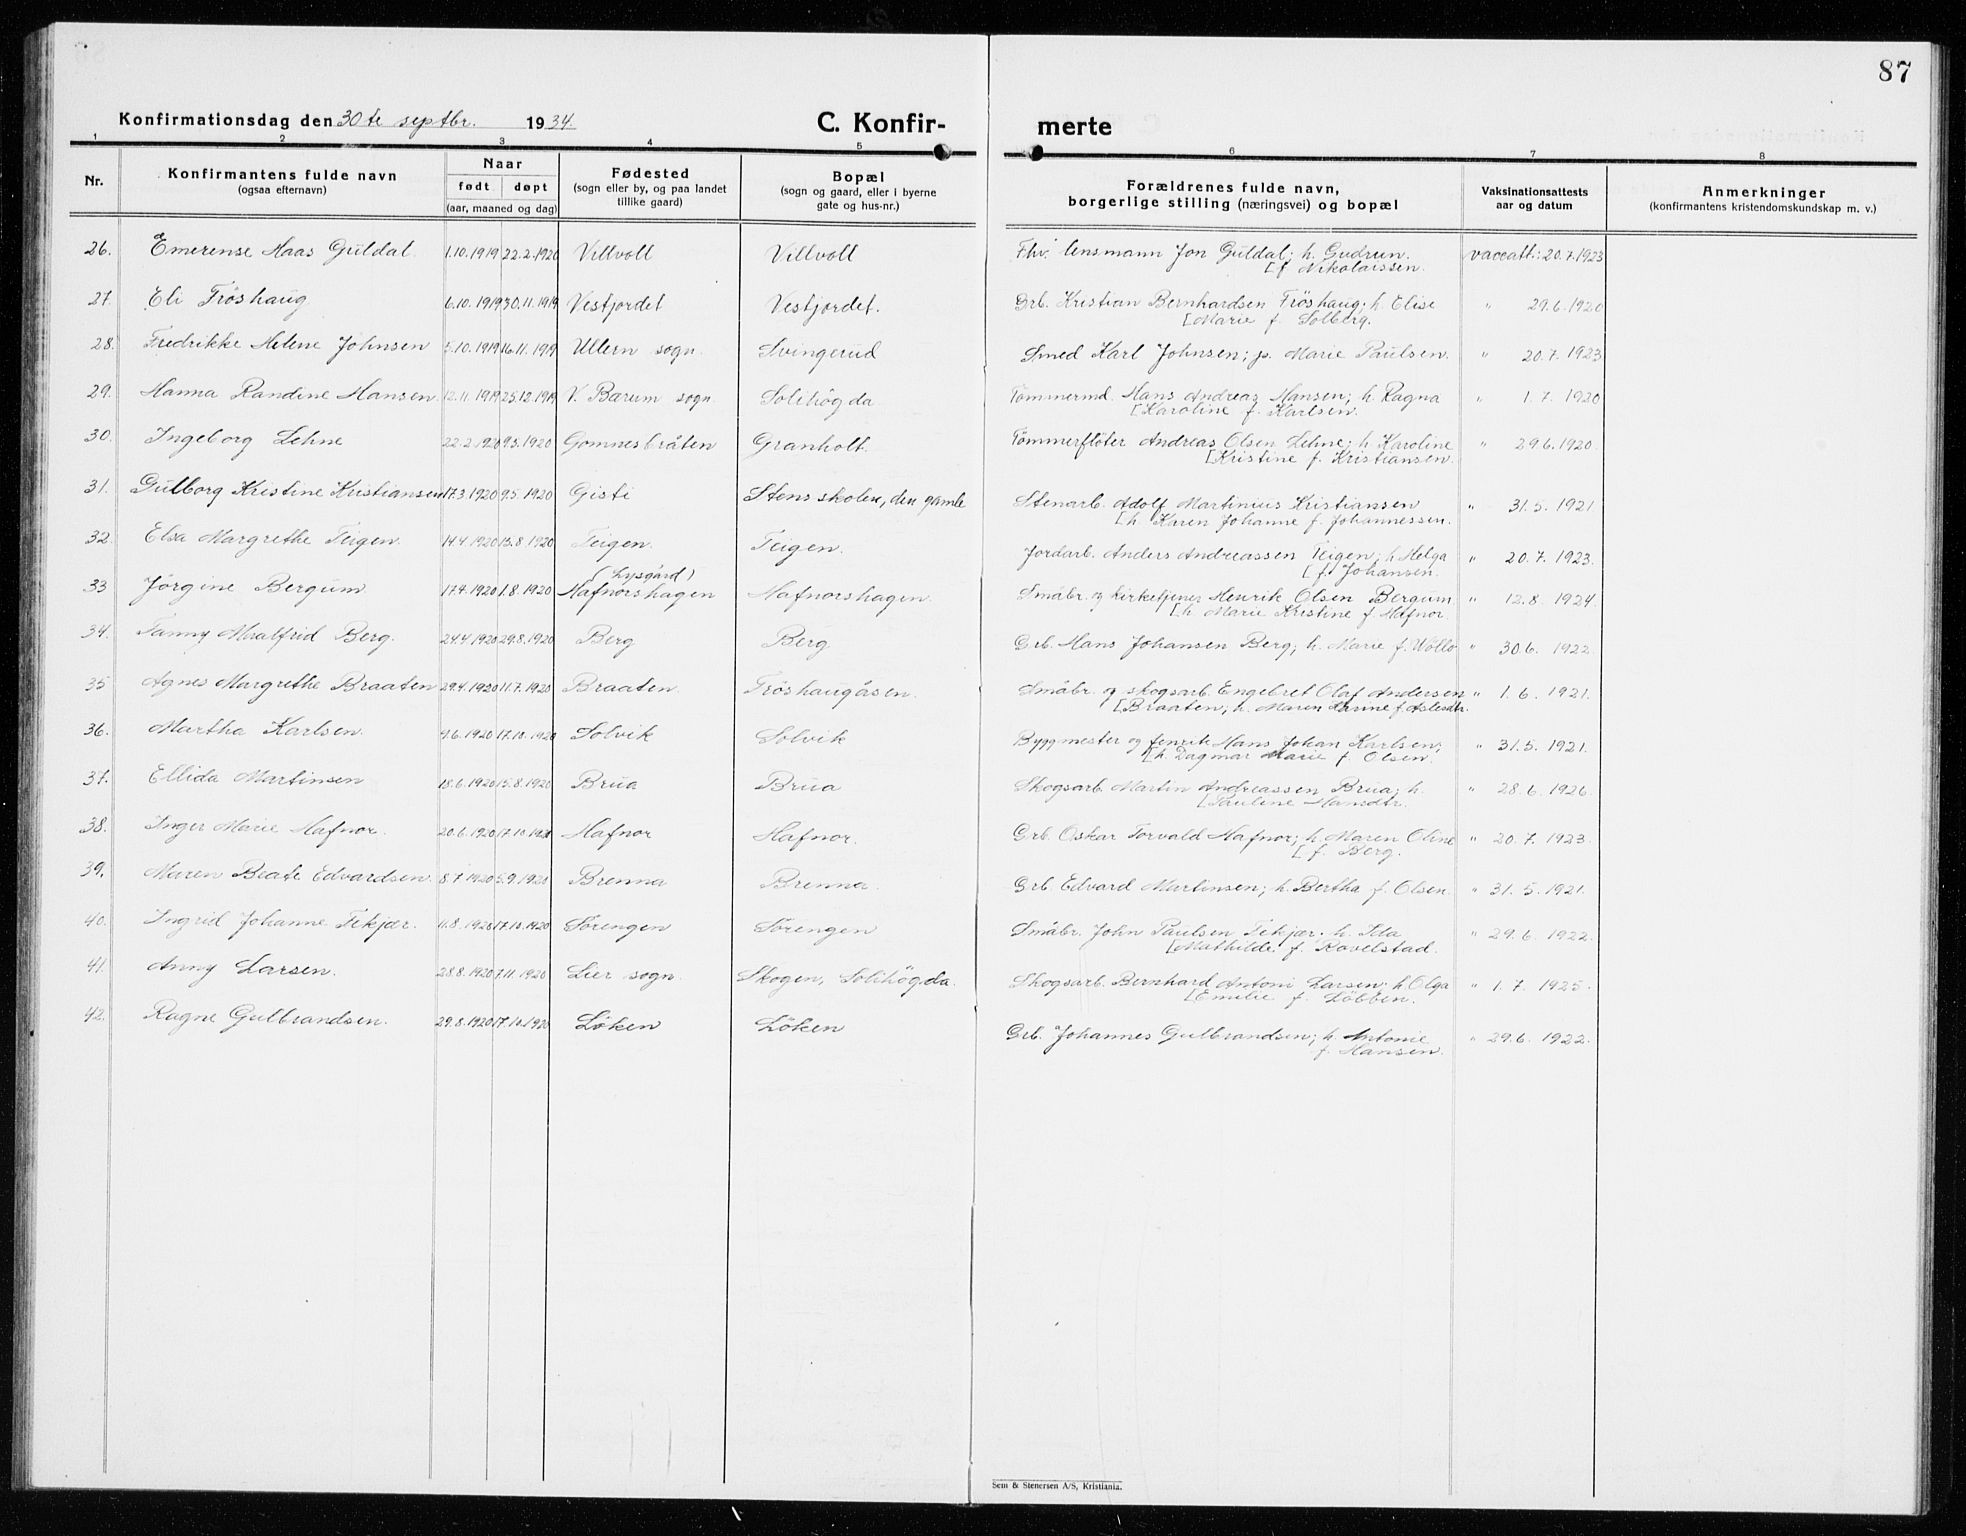 87
Konfirmationsdag den 30te septbr. 1934.
C. Konfir-
merte
1 2 3 4 5 6 7 8
Nr.
Konfirmantens fulde navn
(ogsaa efternavn)
Naar
født døpt
(aar, maaned og dag)
Fødested
(sogn eller by, og paa landet
tillike gaard)
Bopæl
(sogn og gaard, eller i byerne
gate og hus-nr.)
Forældrenes fulde navn,
borgerlige stilling (næringsvei) og bopæl
Vaksinationsattests
aar og datum
Anmerkninger
(konfirmantens kristendomskundskap m. v.)
26. Emerense Haas Guldal. 1.10.1919 22.2.1920 Villvoll Villvoll Fhv. lensmann Jon Guldal; h. Gudrun. vaccatt.: 20.7.1923
[f Nikolaissen.
27. Eli Fröshaug 6.10.1919 30.11.1919 Vestjordet Vestjordet. Grb. Kristian Bernhardsen Fröshaug; h. Elise " 29.6.1920
[Marie f. Solberg.
28. Fredrikke Helene Johnsen 5.10.1919 16.11.1919 Ullern sogn. Svingerud Smed Karl Johnsen; p. Marie Paulsen. " 20.7.1923
29. Hanna Randine Hansen. 12.11.1919 25.12.1919 V. Bærum sogn. Solihögda Tömmermd. Hans Andreas Hansen; h. Ragna " 1.7.1920
[Karoline f. Karlsen.
30. Ingeborg Lehne 22.2.1920 9.5.1920 Gomnesbråten Granholt. Tömmerflöter Andreas Olsen Lehne; h. Karoline " 29.6.1920.
[Kristine f. Kristiansen.
31. Gulborg Kristine Kristiansen 17.3.1920 9.5.1920 Gisti Stensskolen, den gamle Stenarb. Adolf Martinius Kristiansen " 31.5.1921
[h. Karen Johanne f. Johannessen.
32. Elsa Margrethe Teigen. 14.4.1920 15.8.1920 Teigen. Teigen. Jordarb. Anders Andreassen Teigen; h. Helga " 20.7.1923.
[f. Johansen.
(Lysgård)
33 Jörgine Bergum 17.4.1920 1.8.1920 Hafnorshagen Hafnorshagen. Småbr. og kirketjener Henrik Olsen Bergum " 12.8.1924.
[h. Marie Kristine f. Hafnor.
34. Fanny Alfrid Berg. 24.4.1920 29.8.1920 Berg Berg Grb. Hans Johansen Berg; h. Marie f. Wöllo " 30.6.1922.
35 Agnes Margrethe Braaten 29.4.1920 11.7.1920 Braaten. Fröshaugåsen. Småbr. og skogsarb. Engebret Olaf Andersen " 1.6.1921.
[Braaten; h. Maren Karine f. Aslesdtr.
36. Martha Karlsen. 9.6.1920 17.10.1920 Solvik Solvik Byggmester og Hans Johan Karlsen; " 31.5.1921.
[h. Dagmar Marie f. Olsen.
37. Ellida Martinsen 18.6.1920 15.8.1920 Brua Brua Skogsarb. Martin Andreassen Brua; h. " 28.6.1926.
[Pauline Hansdtr.
38. Inger Marie Hafnor. 20.6.1920 17.10.1920 Hafnor Hafnor. Grb. Oskar Torvald Hafnor; h. Maren Oline " 20.7.1923.
[f. Berg.
39. Maren Beate Edvardsen. 8.7.1920 5.9.1920 Brenna Brenna. Grb. Edvard Martinsen; h. Bertha f. Olsen. " 31.5.1921.
40. Ingrid Johanne Fekjær. 11.8.1920 17.10.1920 Sörengen Sörengen Småbr. John Paulsen Fekjær. h. Ida " 29.6.1922.
[Mathilde f. Kovelstad.
41. Anny Larsen. 28.8.1920 7.11.1920 Lier sogn. Skogen, Solihögda. Skogsarb. Bernhard Antoni Larsen; h. Olga " 1.7.1925.
[Emilie f. Löbben.
42. Ragne Gulbrandsen. 29.8.1920 17.10.1920 Löken Löken Grb. Johannes Gulbrandsen; h. Antonie " 29.6.1922.
f. Hansen.
Sem & Stenersen A/S, Kristiania.